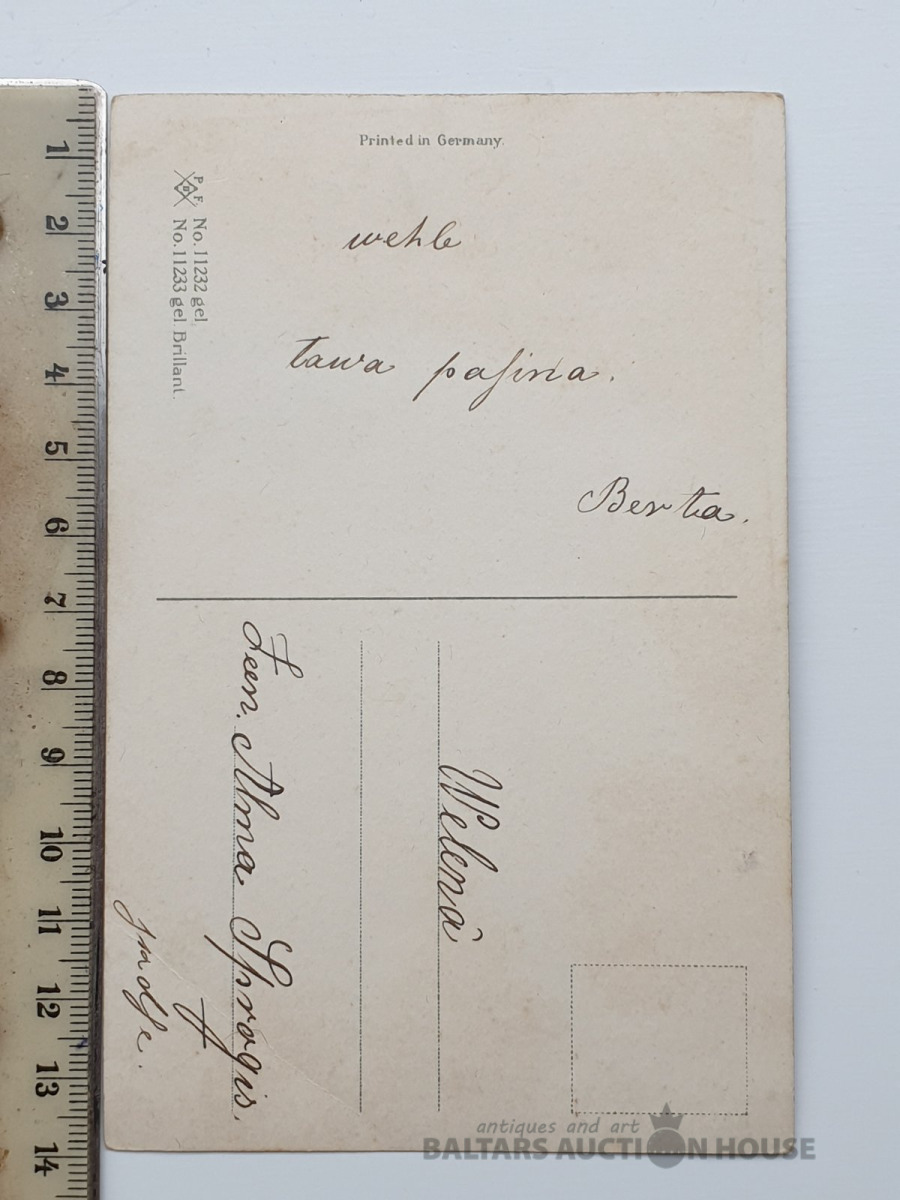 Printed in Germany.
P. F. B
No. 11232 gel.
No. 11233 gel. Brillant.
wehle
tawa paſina.
Berta.
Zeen. Alma Sprogis.
Welenâ
1
2
3
4
5
6
7
8
9
10
11
12
13
14
antiques and art
BALTARS AUCTION HOUSE